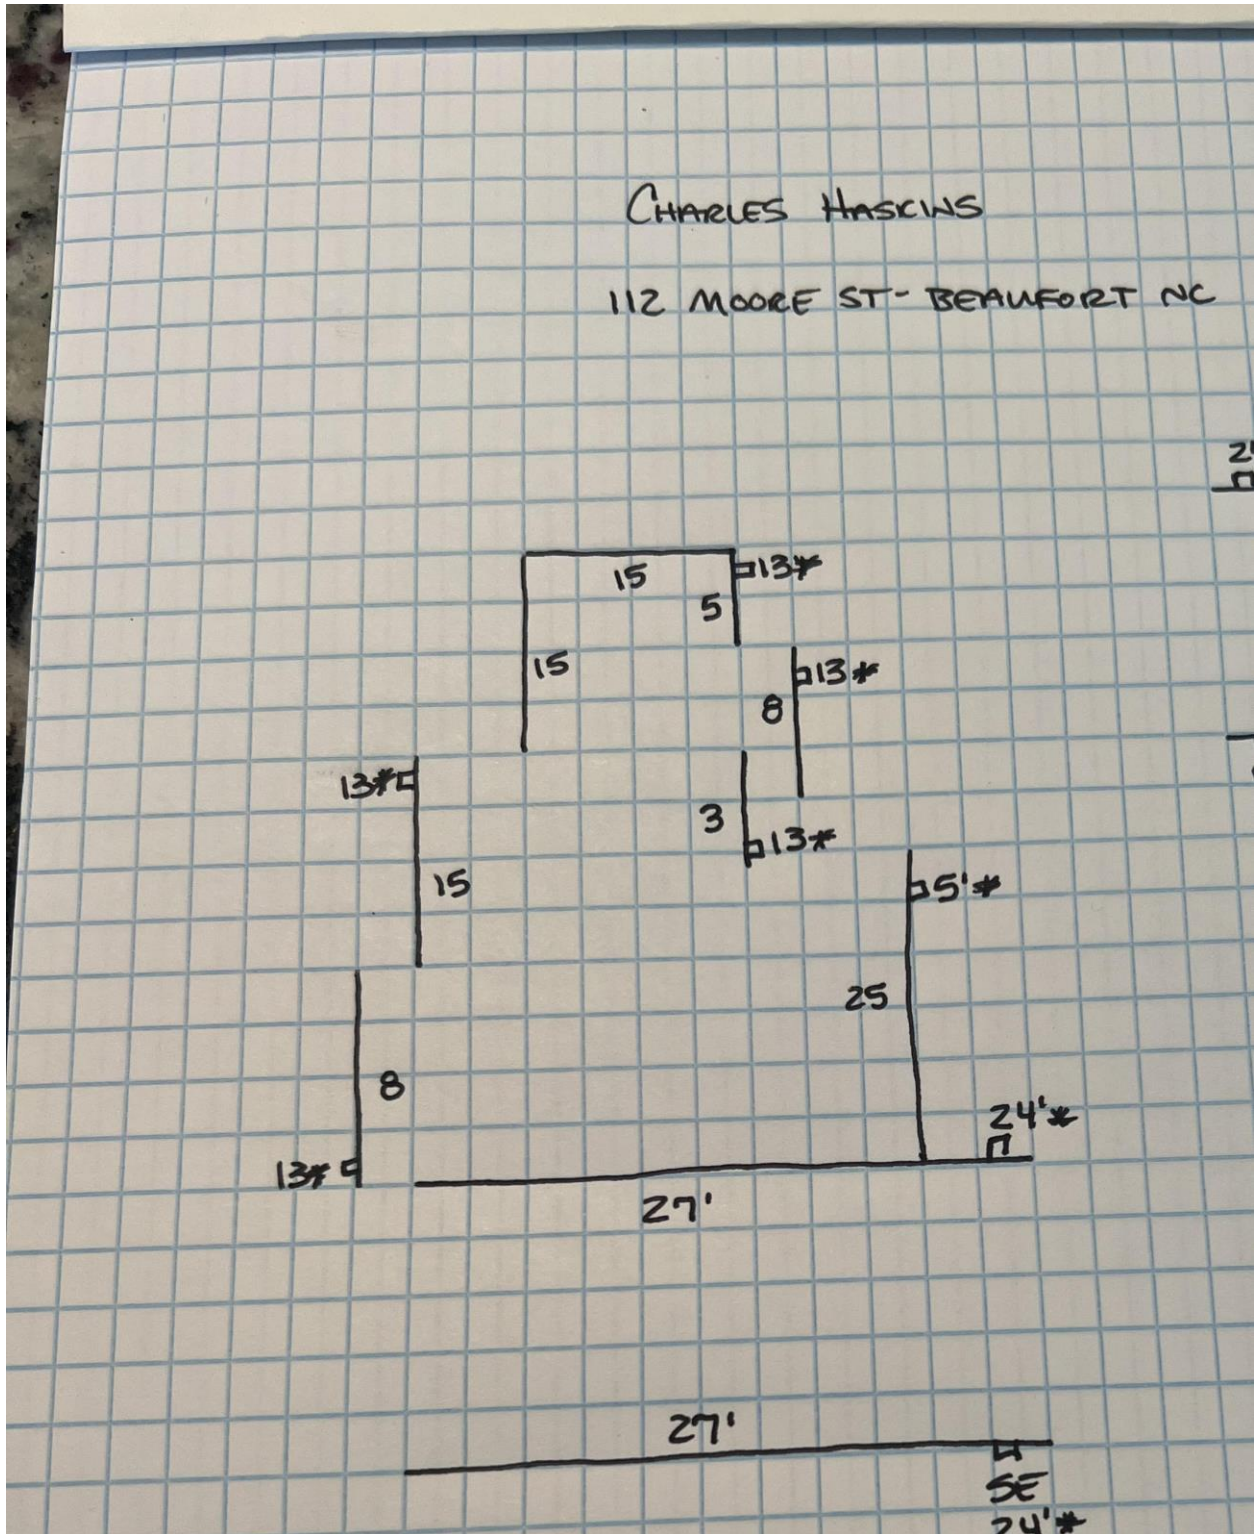 CHARLES HASKINS
112 MOORE ST - BEAUFORT NC
15
13*
5
15
13*
8
13*
3
13*
15
5'*
25
8
24'*
13*
27'
27'
SE
24'*